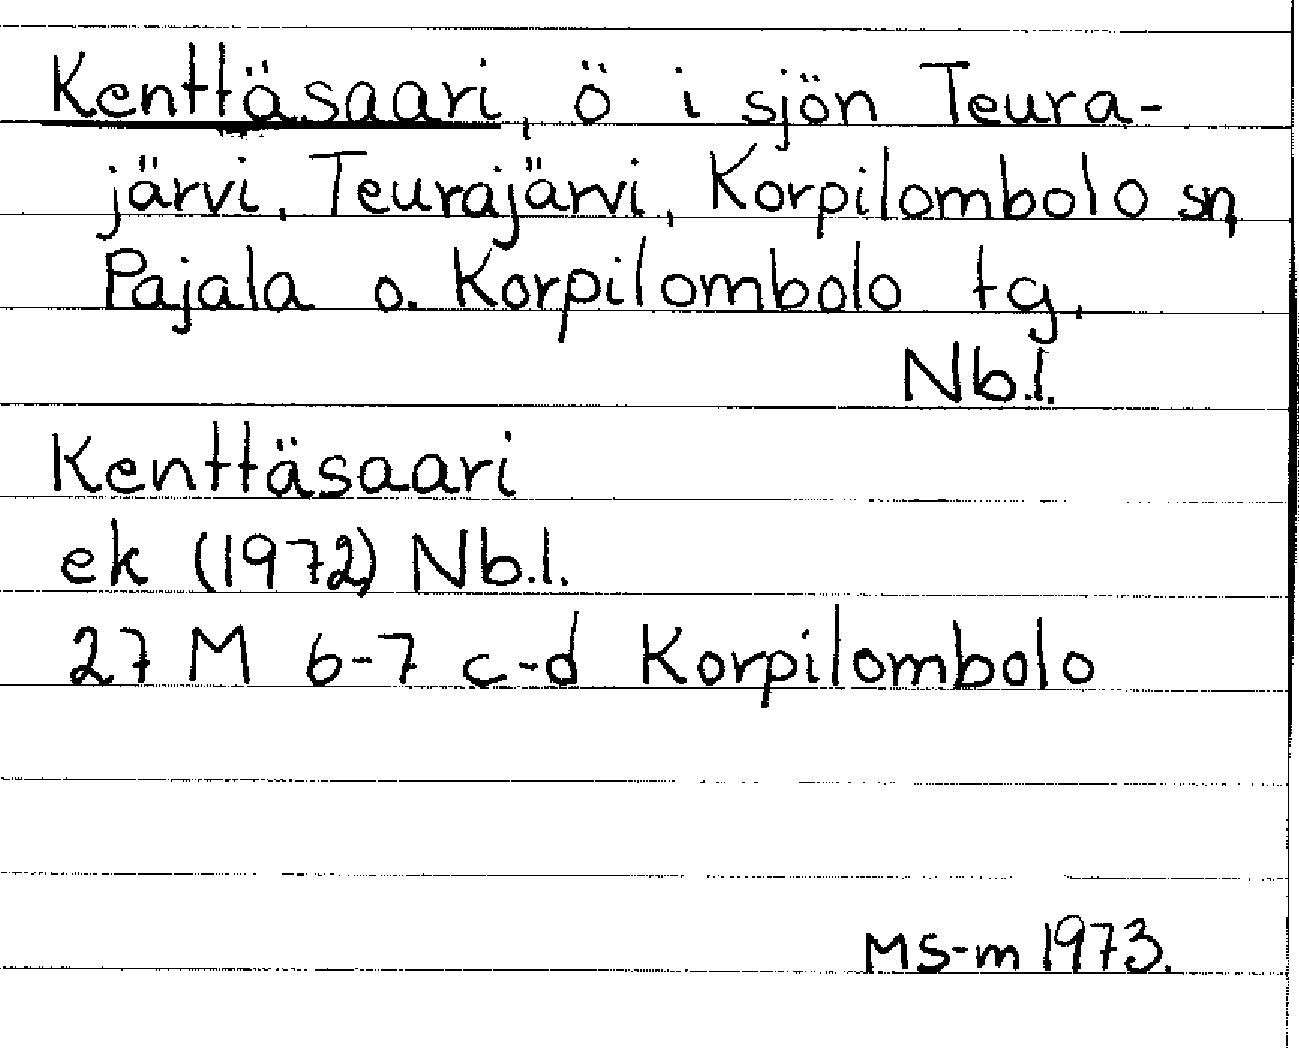 Kenttäsaari, ö i sjön Teura-
järvi, Teurajärvi, Korpilombolo sn,
Pajala o. Korpilombolo tg,
Nb.l.
Kenttäsaari
ek (1972) Nb.l.
27 M 6-7 c-d Korpilombolo
MS-m 1973.